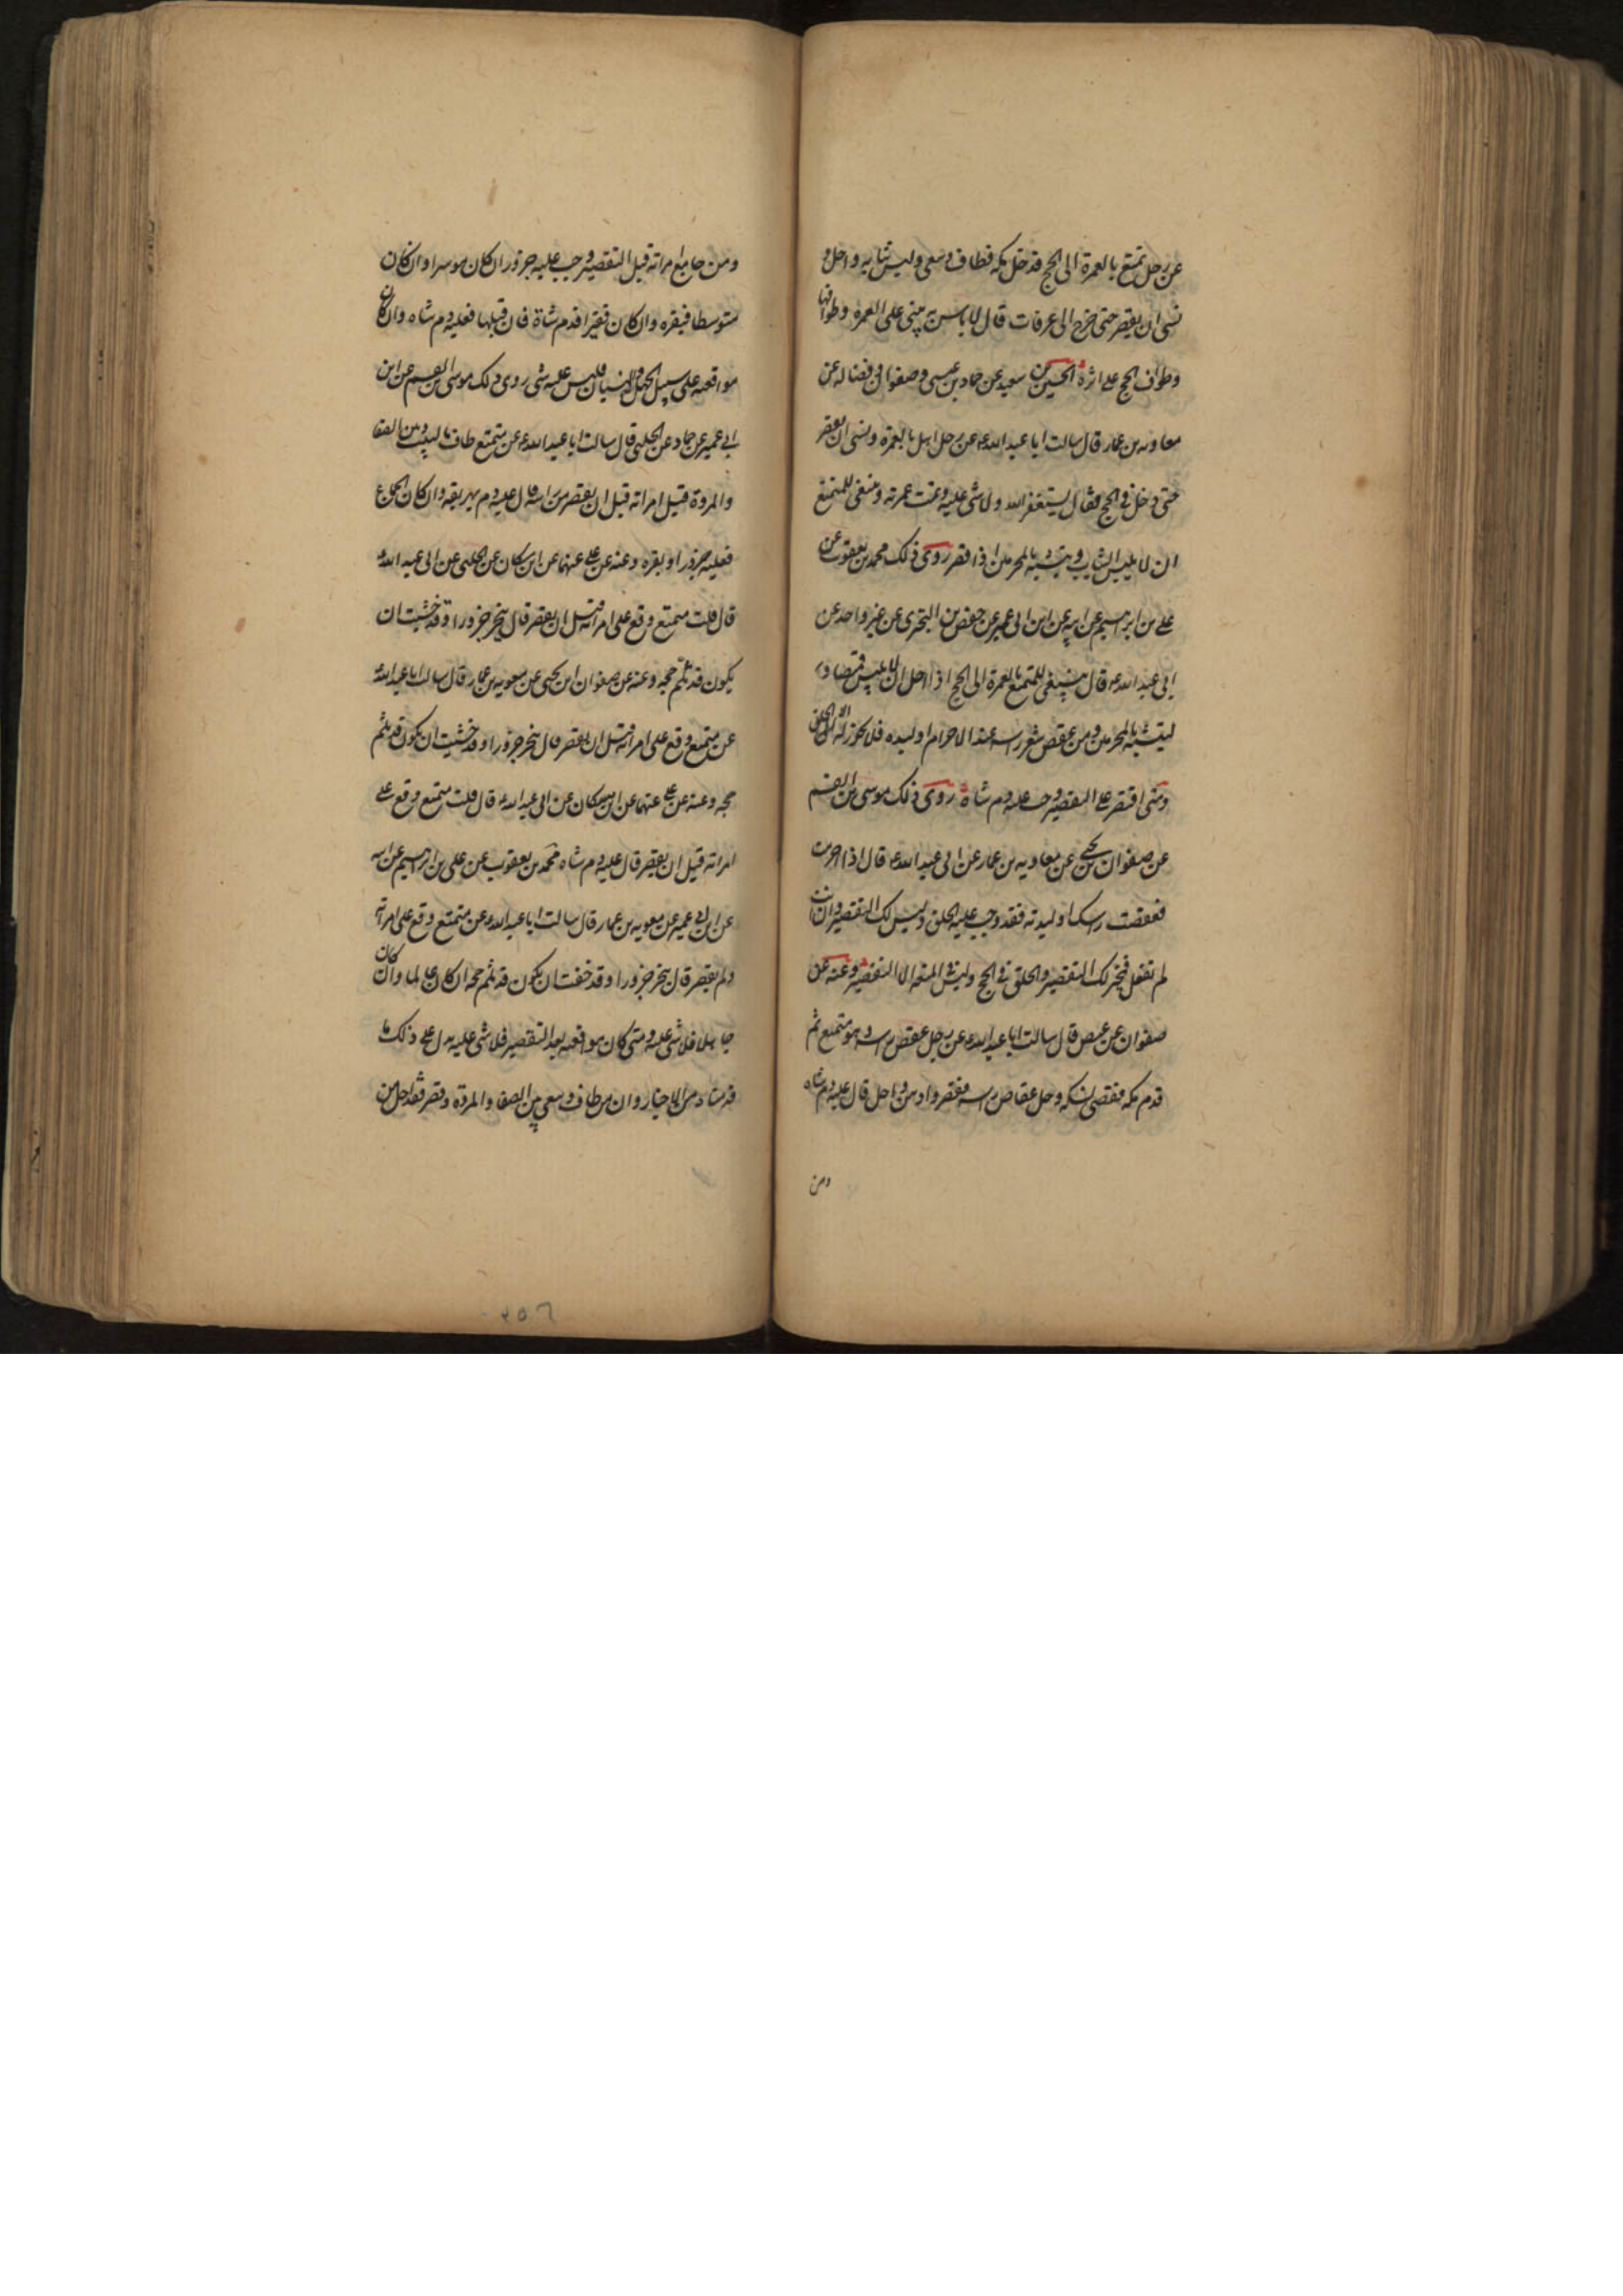 عن رجل تمتع بالعمرة الى الحج فدخل مكة فطاف وسعى ولبس ثيابه واحل و
نسى ان يقصر حتى خرج الى عرفات قال لا باس به يبنى على العمرة وطوافها
وطواف الحج على اثره الحسين بن سعيد عن حماد بن عيسى وصفوان وفضاله عن
معاويه بن عمار قال سالت ابا عبد الله ع عن رجل اهل بالعمرة ونسى ان يقصر
حتى دخل في الحج فقال يستغفر الله ولا شى عليه وتمت عمرته وينبغى للمتمتع
ان لا يلبس الثياب ويتشبه بالمحرمين اذا قصر روى ذلك محمد بن يعقوب عن
على بن ابرهيم عن ابيه عن ابن ابى عمير عن حفص بن البخترى عن غير واحد عن
ابى عبد الله ع قال ينبغى للمتمتع بالعمرة الى الحج اذا احل ان لا يلبس قميصا و
ليتشبه بالمحرمين ومن عقص شعر راسه عند الاحرام او لبده فلا يجوز له الا الحلق
ومتى اقتصر على التقصير وجب عليه دم شاة روى ذلك موسى بن القسم
عن صفوان بن يحيى عن معاويه بن عمار عن ابى عبد الله ع قال اذا احرمت
فعقصت راسك او لبدته فقد وجب عليه الحلق وليس لك التقصير وان انت
لم تفعل فخير لك التقصير والحلق في الحج وليس المتعه الا التقصير وعنه عن
صفوان عن عيص قال سالت ابا عبد الله ع عن رجل عقص راسه وهو متمتع ثم
قدم مكه فقضى نسكه وحل عقاص راسه فقصر وادهن واحل قال عليه دم شاه
ومن
ومن جامع امراته قبل التقصير وجب عليه جزور ان كان موسرا وان كان
متوسطا فبقره وان كان فقيرا فدم شاة فان قبلها فعليه دم شاه وان كان
مواقعته على سبيل الجهل والنسيان فليس عليه شى روى ذلك موسى بن القسم عن ابن
ابى عمير عن حماد عن الحلبى قال سالت ابا عبد الله ع عن متمتع طاف بالبيت وبين الصفا
والمروة فقبل امراته قبل ان يقصر من راسه قال عليه دم يهريقه وان كان الجماع
فعليه جزور او بقره وعنه عن على عنهما عن ابن مسكان عن الحلبى عن ابى عبد الله ع
قال قلت متمتع وقع على امراته قبل ان يقصر قال ينحر جزورا وقد خشيت ان
يكون قد ثلم حجه وعنه عن صفوان ابن يحيى عن معويه بن عمار قال سالت ابا عبد الله ع
عن متمتع وقع على امراته قبل ان يقصر قال ينحر جزورا وقد خشيت ان يكون قد ثلم
حجه وعنه عن على عنهما عن ابن مسكان عن ابى عبد الله ع قال قلت متمتع وقع على
امراته قبل ان يقصر قال عليه دم شاه محمد بن يعقوب عن على بن ابرهيم عن ابيه
عن ابن ابى عمير عن معويه بن عمار قال سالت ابا عبد الله ع عن متمتع وقع على امراته
ولم يقصر قال ينحر جزورا وقد خفت ان يكون قد ثلم حجه ان كان عالما وان كان
جاهلا فلا شى عليه ومتى كان مواقعته بعد التقصير فلا شى عليه يدل على ذلك ما
قدمناه من الاخبار وان من طاف وسعى بين الصفا والمروة وقصر فقد احل من